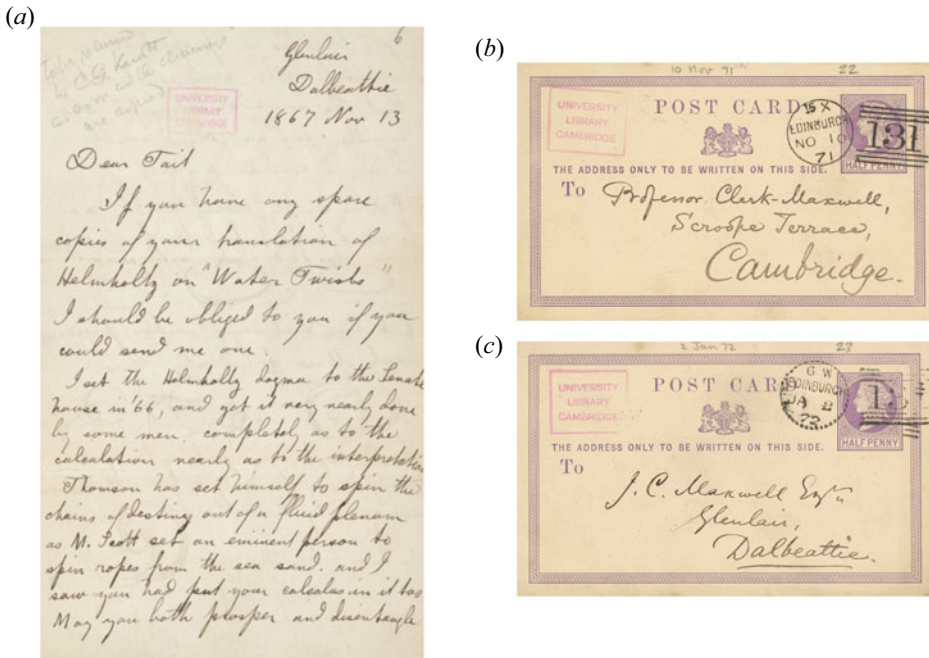 (a)
6
to be returned
to C.G. Knott
as soon as the drawings
are copied
UNIVERSITY
LIBRARY
CAMBRIDGE
Glenlair
Dalbeattie
1867 Nov 13
Dear Tait
If you have any spare
copies of your translation of
Helmholtz on "Water Twists"
I should be obliged to you if you
could send me one.
I set the Helmholtz dogma to the Senate
house in '66, and got it very nearly done
by some men, completely as to the
calculation nearly as to the interpretation
Thomson has set himself to spin the
chains of destiny out of a fluid plenum
as M. Scott set an eminent person to
spin ropes from the sea sand. and I
saw you had put your calculus in it too
May you both prosper and disentangle
(b)
10 Nov 71
22
UNIVERSITY
LIBRARY
CAMBRIDGE
POST CARD
15 X
EDINBURGH
NO 10
71
131
HALF PENNY
THE ADDRESS ONLY TO BE WRITTEN ON THIS SIDE.
To Professor Clerk-Maxwell,
Scroope Terrace,
Cambridge.
(c)
2 Jan 72
23
UNIVERSITY
LIBRARY
CAMBRIDGE
POST CARD
G W
EDINBURGH
JA 2
72
13
HALF PENNY
THE ADDRESS ONLY TO BE WRITTEN ON THIS SIDE.
To
J. C. Maxwell Esqre
Glenlair,
Dalbeattie.